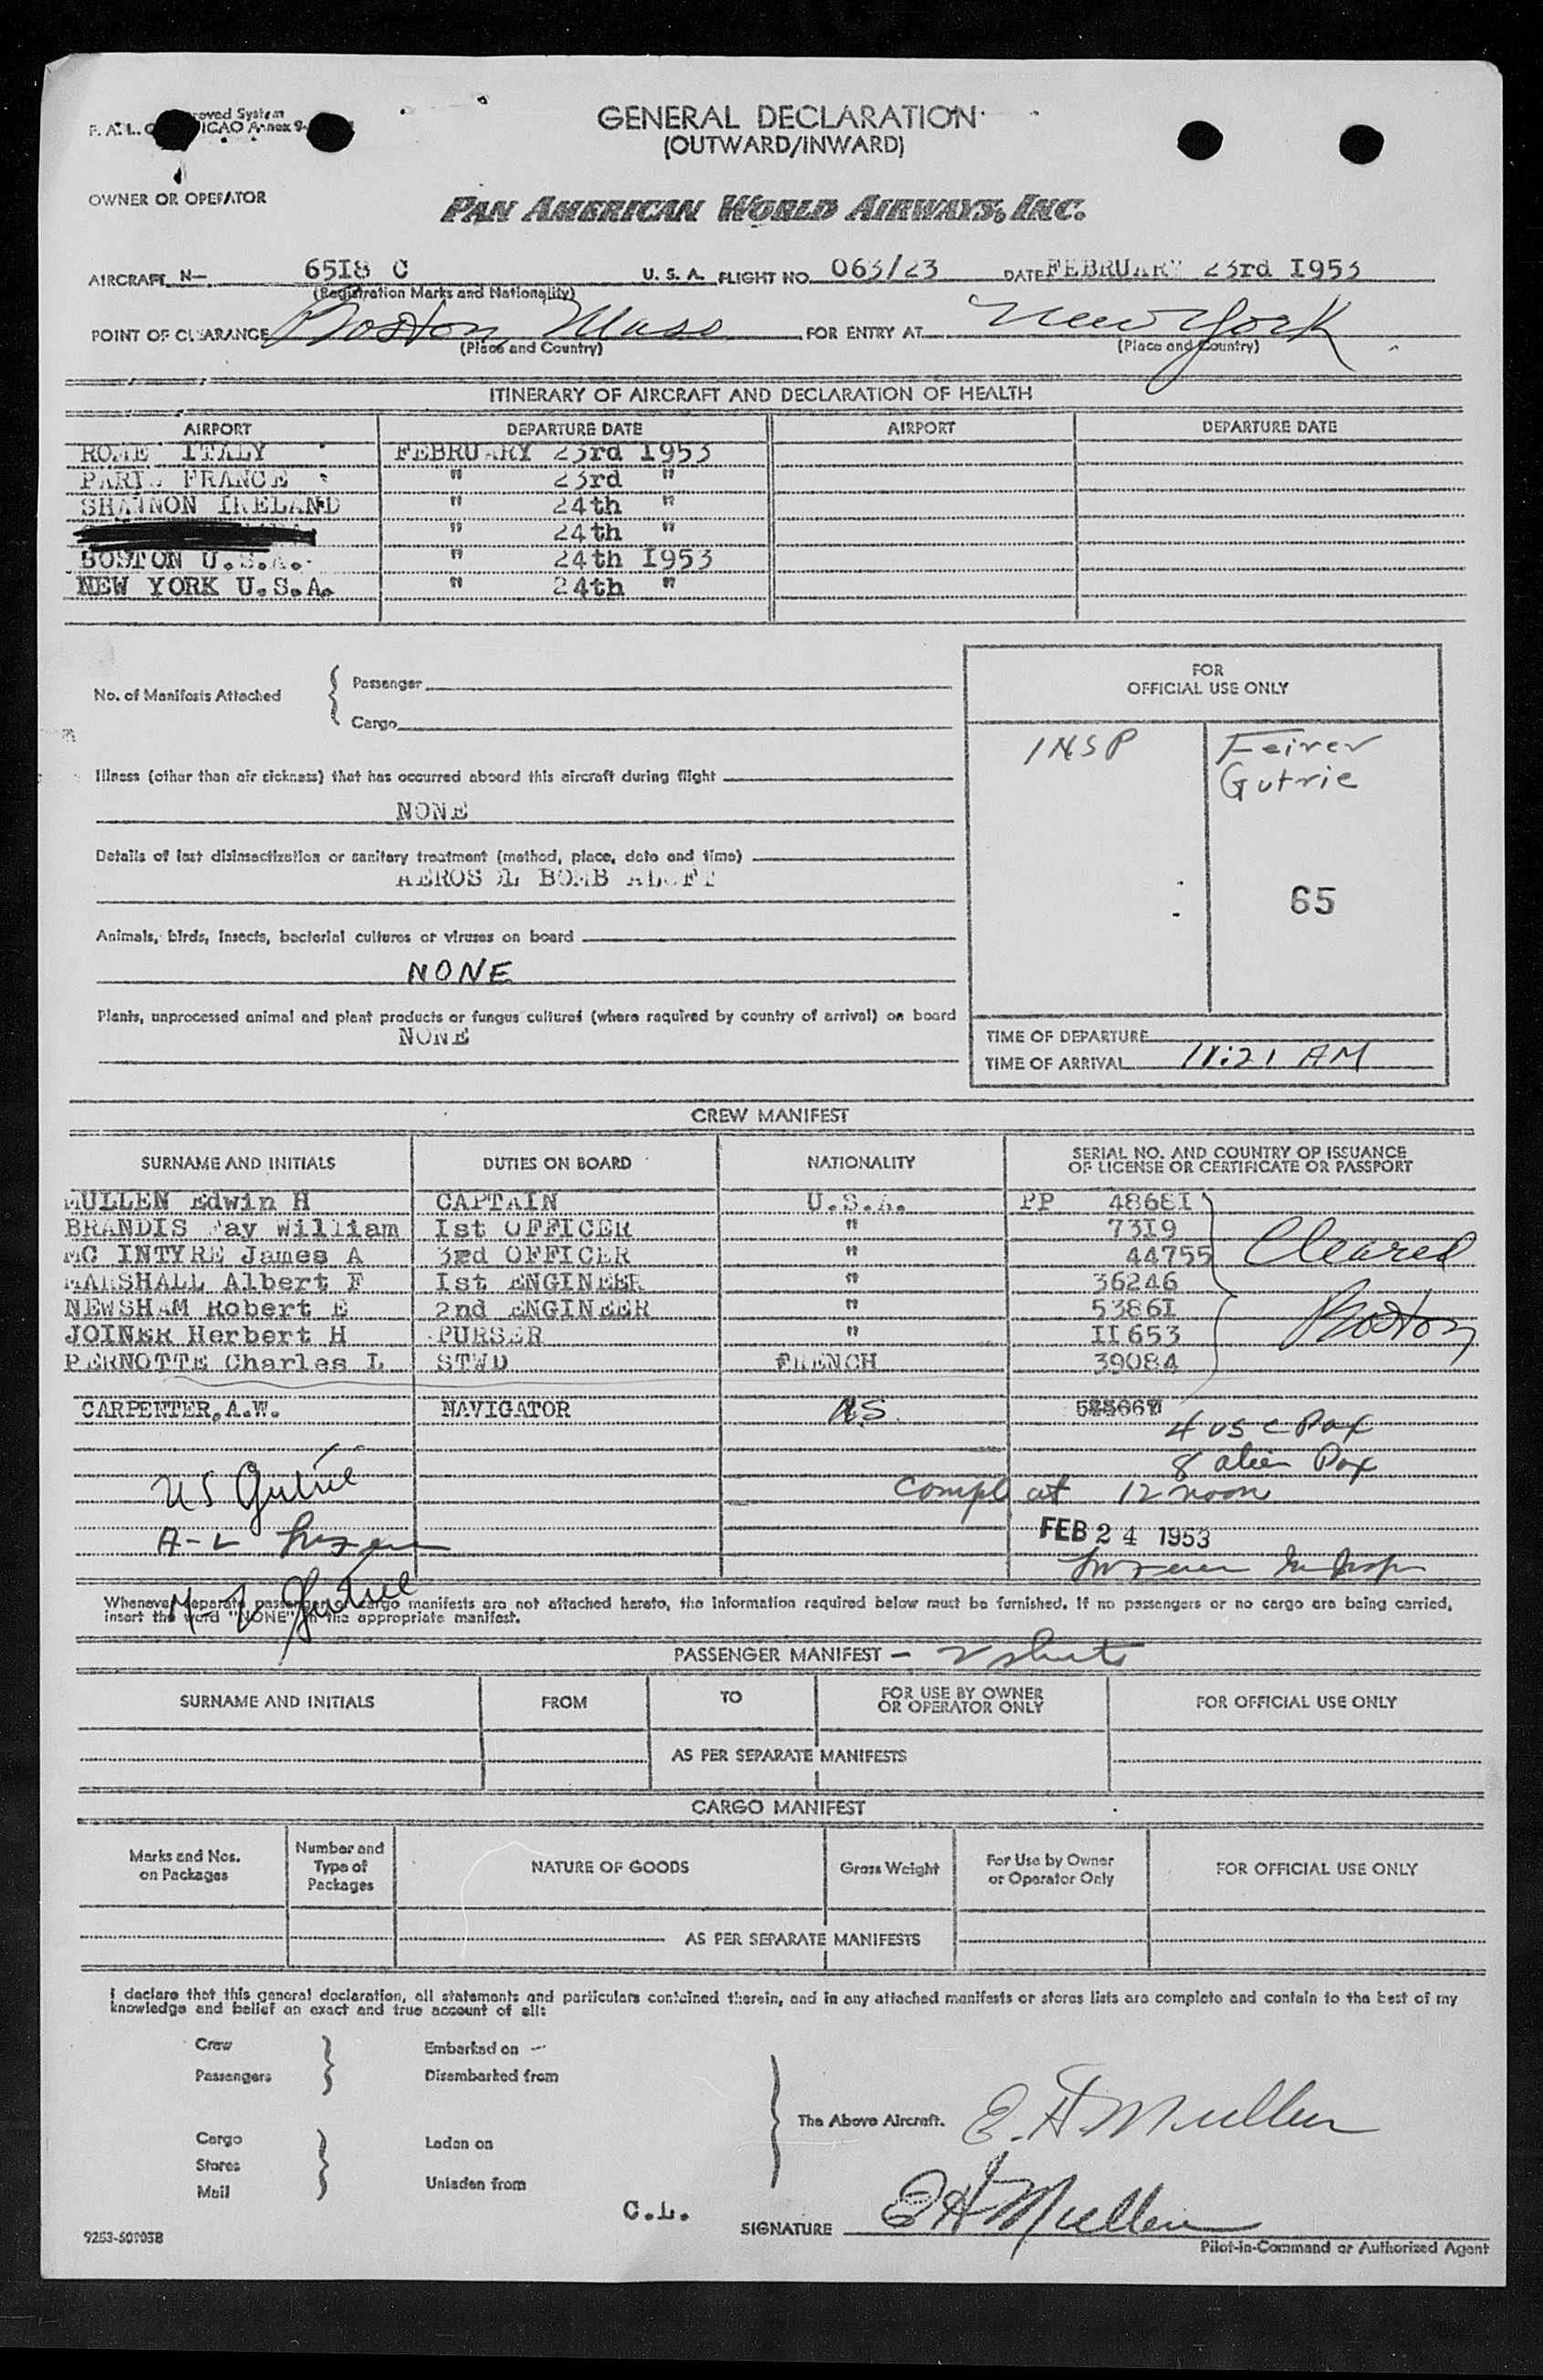 roved System
F. A. L. ICAO Annex 9
GENERAL DECLARATION
(OUTWARD/INWARD)
OWNER OR OPERATOR
PAN AMERICAN WORLD AIRWAYS, INC.
AIRCRAFT N— 65I8 C U. S. A. FLIGHT NO. 063/23 DATE FEBRUARY 23rd I953
(Registration Marks and Nationality)
POINT OF CLEARANCE Boston, Mass FOR ENTRY AT New York
(Place and Country) (Place and Country)
ITINERARY OF AIRCRAFT AND DECLARATION OF HEALTH
AIRPORT DEPARTURE DATE AIRPORT DEPARTURE DATE
ROME ITALY FEBRUARY 23rd I953
PARIS FRANCE " 23rd "
SHANNON IRELAND " 24th "
" 24th "
BOSTON U.S.A. " 24th I953
NEW YORK U.S.A. " 24th "
No. of Manifests Attached
Passenger
Cargo
FOR
OFFICIAL USE ONLY
INSP Feirer
Gutrie
65
Illness (other than air sickness) that has occurred aboard this aircraft during flight
NONE
Details of last disinsectization or sanitary treatment (method, place, date and time)
AEROSOL BOMB ALOFT
Animals, birds, insects, bacterial cultures or viruses on board
NONE
Plants, unprocessed animal and plant products or fungus cultures (where required by country of arrival) on board
NONE
TIME OF DEPARTURE
TIME OF ARRIVAL 11:21 AM
CREW MANIFEST
SURNAME AND INITIALS DUTIES ON BOARD NATIONALITY SERIAL NO. AND COUNTRY OF ISSUANCE
OF LICENSE OR CERTIFICATE OR PASSPORT
MULLEN Edwin H CAPTAIN U.S.A. PP 4868I
BRANDIS Fay William Ist OFFICER " 73I9
MC INTYRE James A 3rd OFFICER " 44755
MARSHALL Albert F Ist ENGINEER " 36246
NEWSHAM Robert E 2nd ENGINEER " 5386I
JOINER Herbert H PURSER " II653
PERNOTTE Charles L STWD FRENCH 39084
Cleared
Boston
CARPENTER, A.W. NAVIGATOR U.S.
4 usc Pax
8 alien Pax
US Gutrie
Compl at 12 noon
A-L
FEB 24 1953
Whenever separate passenger or cargo manifests are not attached hereto, the information required below must be furnished. If no passengers or no cargo are being carried,
insert the word "NONE" in the appropriate manifest.
PASSENGER MANIFEST — 2 sheets
SURNAME AND INITIALS FROM TO FOR USE BY OWNER
OR OPERATOR ONLY FOR OFFICIAL USE ONLY
AS PER SEPARATE MANIFESTS
CARGO MANIFEST
Marks and Nos.
on Packages Number and
Type of
Packages NATURE OF GOODS Gross Weight For Use by Owner
or Operator Only FOR OFFICIAL USE ONLY
AS PER SEPARATE MANIFESTS
I declare that this general declaration, all statements and particulars contained therein, and in any attached manifests or stores lists are complete and contain to the best of my
knowledge and belief an exact and true account of all:
Crew Embarked on
Passengers Disembarked from
The Above Aircraft. E. H. Mullen
Cargo Laden on
Stores
Mail Unladen from
C.L.
SIGNATURE E H Mullen
9253-50905B
Pilot-in-Command or Authorized Agent